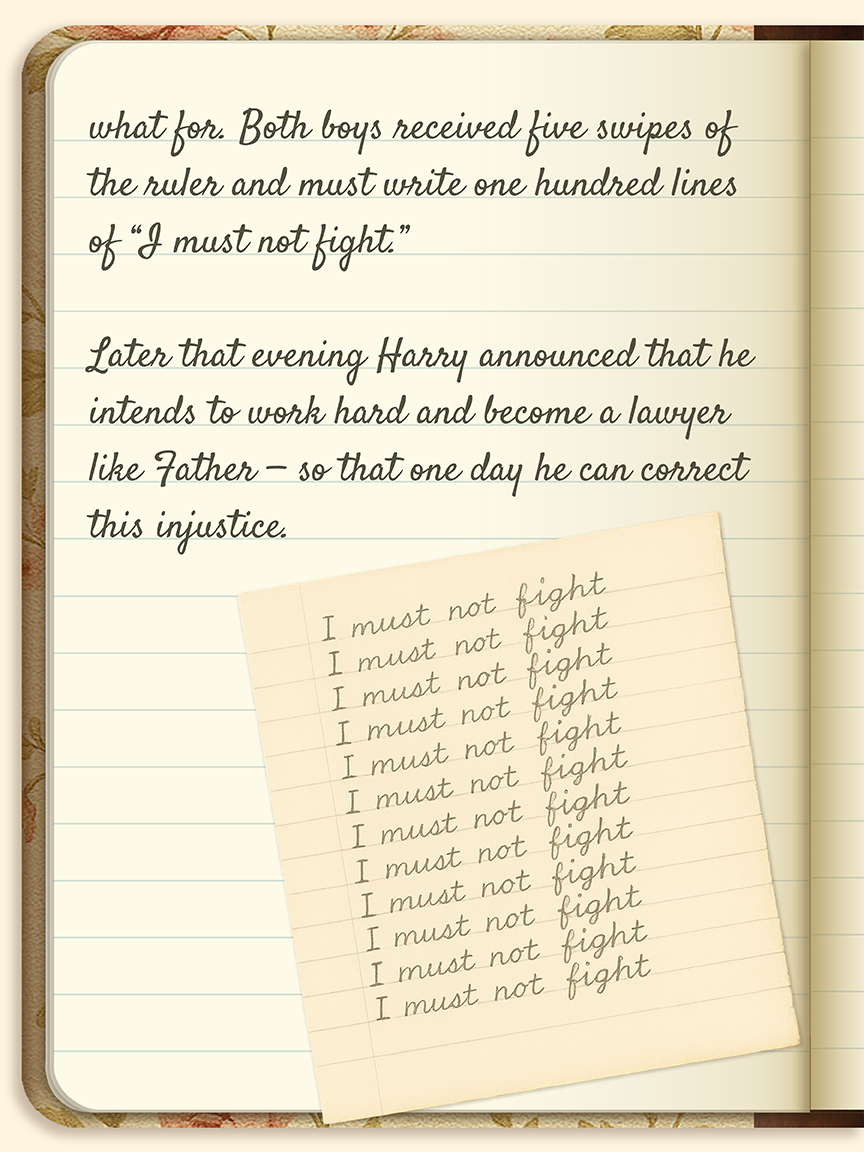 what for. Both boys received five swipes of
the ruler and must write one hundred lines
of “I must not fight.”
Later that evening Harry announced that he
intends to work hard and become a lawyer
like Father – so that one day he can correct
this injustice.
I must not fight
I must not fight
I must not fight
I must not fight
I must not fight
I must not fight
I must not fight
I must not fight
I must not fight
I must not fight
I must not fight
I must not fight